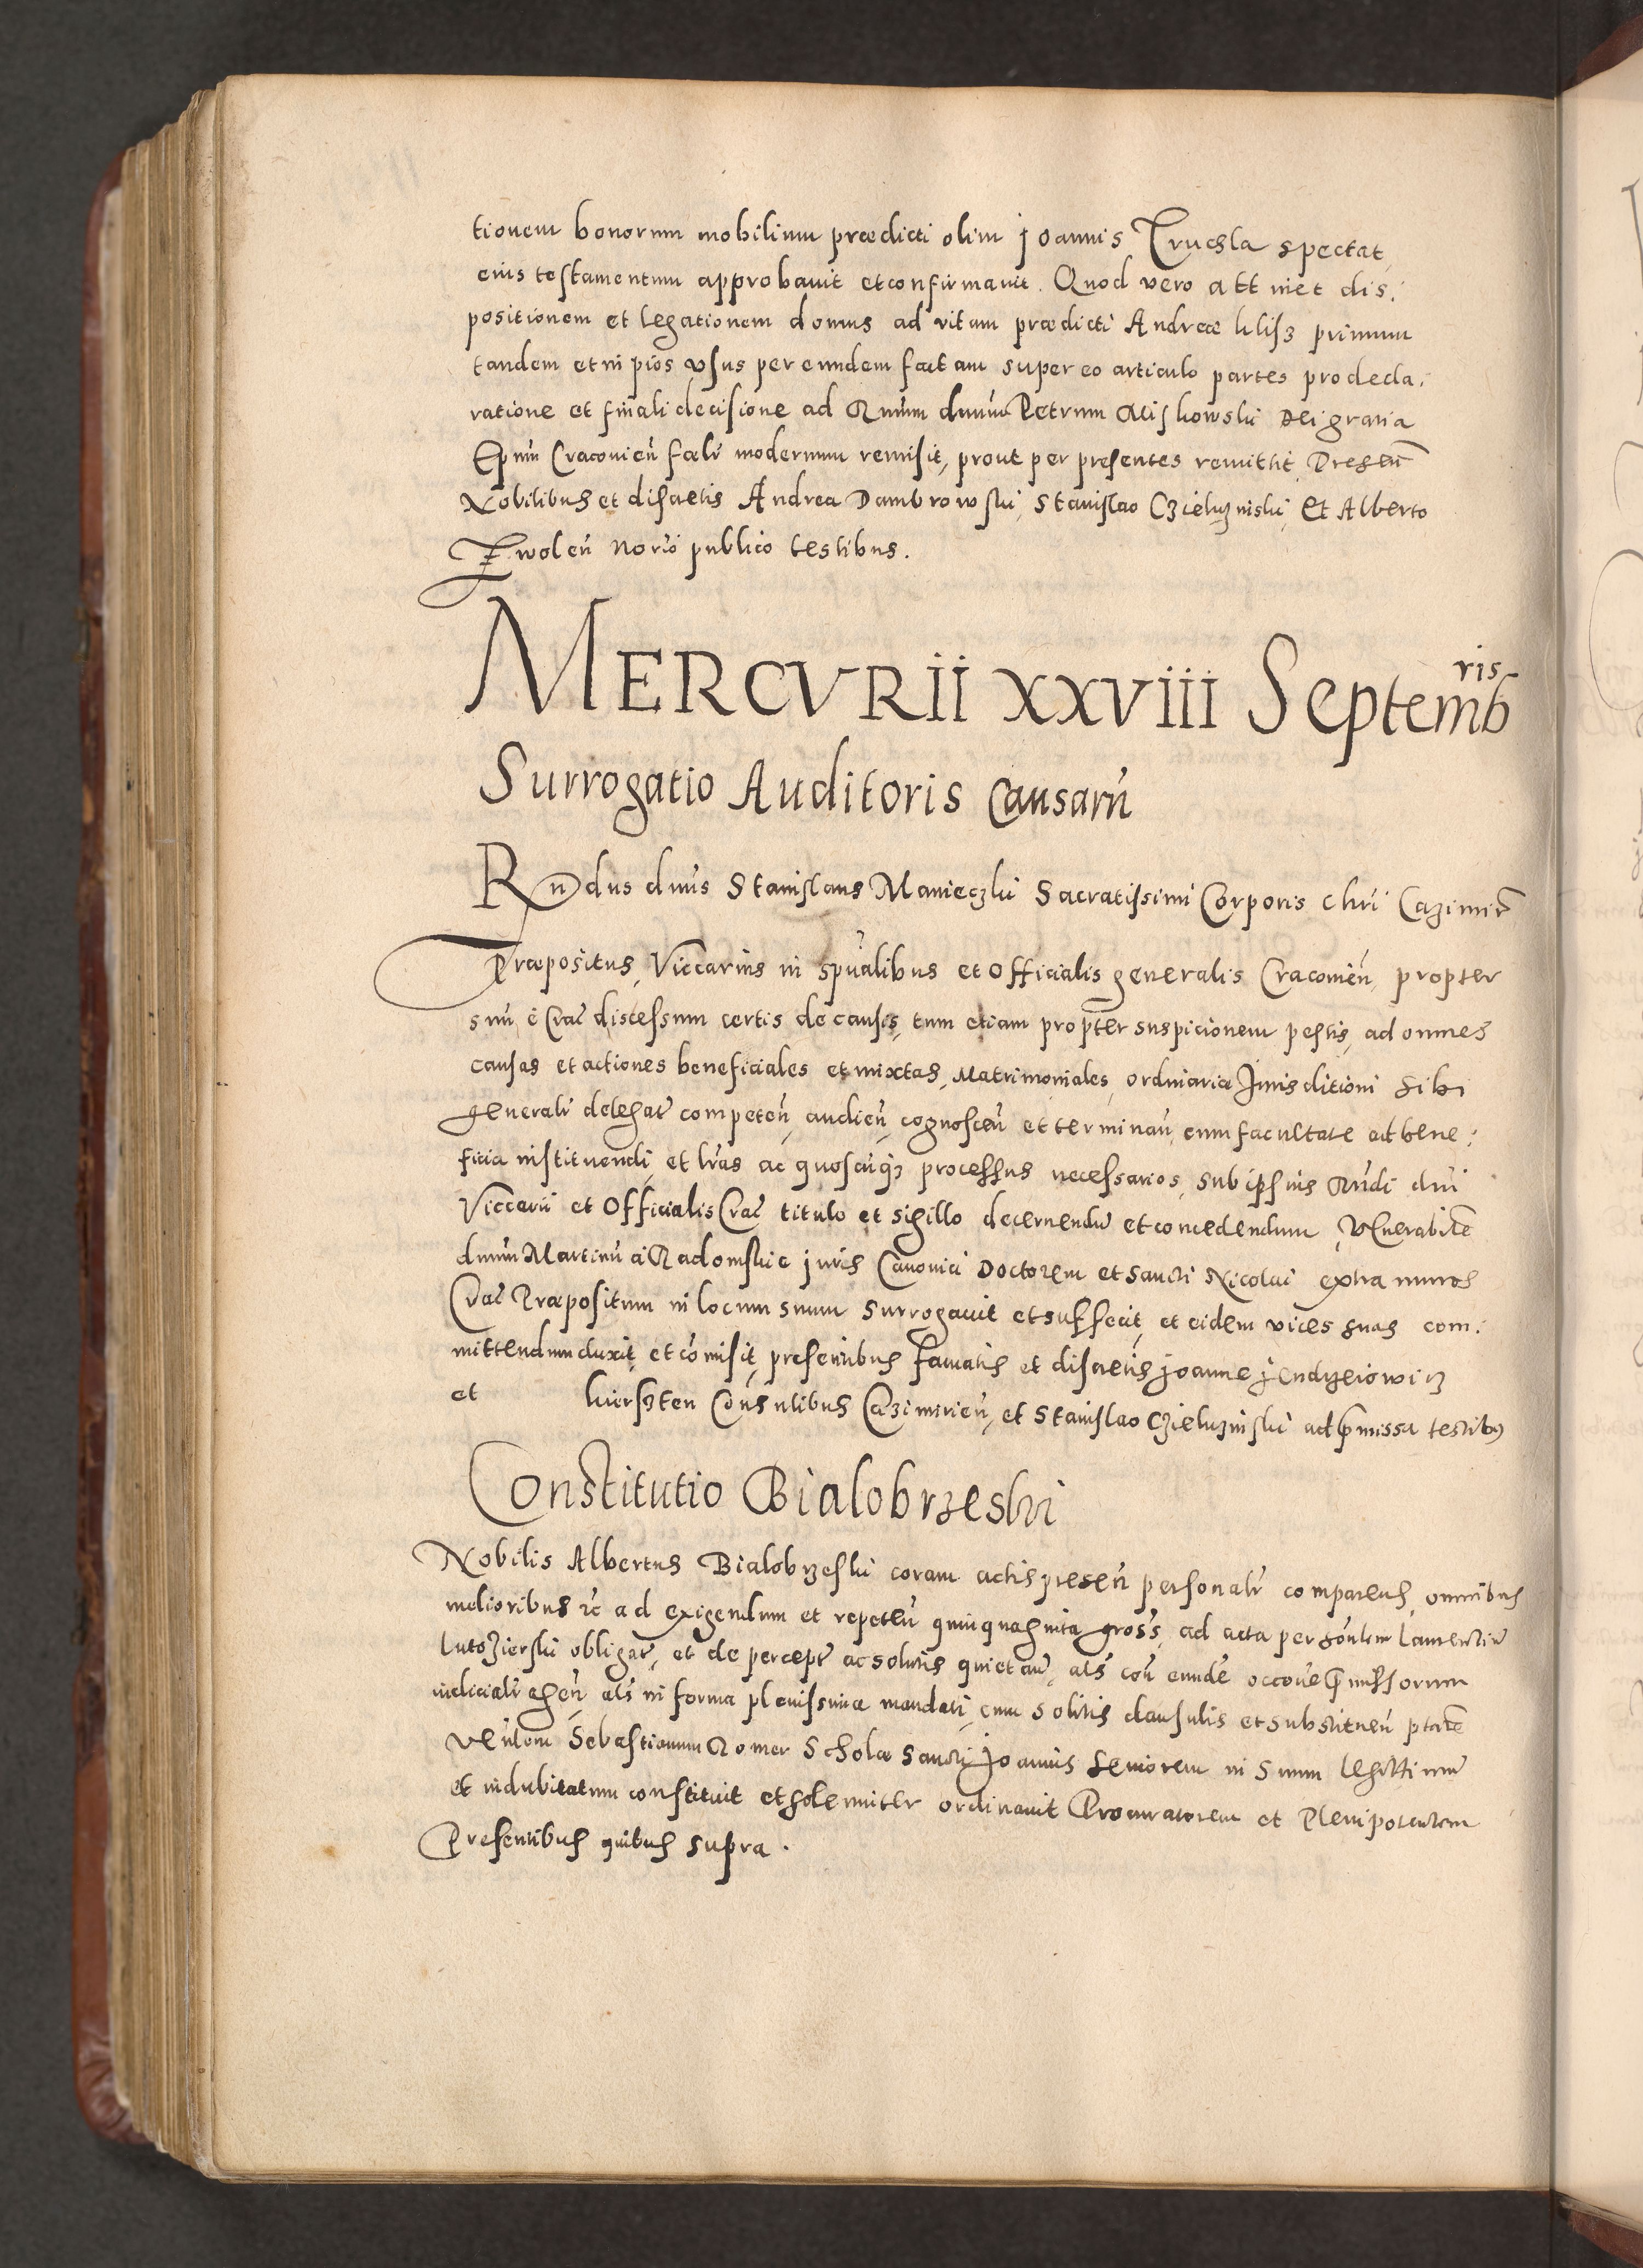 tionem bonorum mobilium prædicti olim joannis Truchla spectat,
eius testamentum approbauit et confirmauit. Quod vero attinet dis:
positionem et legationem domus ad vitam prædicti Andreæ klisz primum
tandem et in pios vsus per eundem factam super eo articulo partes pro decla:
ratione et finali decisione ad Rmūm dnūm Petrum Miskowski Dei gratia
Epūm Cracovieñ fœlr modernum remisit, prout per presentes remittit, Preseñ
Nobilibus et discretis Andrea Dambrowski, Stanislao Czieluznski, Et Alberto
Zwoleñ Norio publico testibus.
MERCVRii XXViii Septembris
Surrogatio Auditoris Causarū
Rndus dnūs Stanislaus Manieczki Sacratissimi Corporis Chrī Cazimir
Præpositus, Viccarius in spūalibus et Officialis generalis Cracovieñ, propter
suū è Crac discessum certis de causis, tum etiam propter suspicionem pestis, ad omnes
causas et actiones beneficiales et mixtas, Matrimoniales, ordinariæ Jurisditioni sibi
generalr delegatr competeñ, audieñ, cognosceñ et terminañ, cum facultate ad bene:
ficia instituendi, et lrās ac quoscūq3 processus necessarios, sub ipsius Rūdi dnī
Viccarii et Officialis Crac titulo et sigillo decernendū et concedendum, Venerabilē
dnūm Martinū à Radomskic juris Canonici Doctorem et Sancti Nicolai extra muros
Crac Præpositum in locum suum surrogauit et suffecit, et eidem vices suas com:
mittendum duxit, et cōmisit, presentibus famatis et discretis Joanne Jendrzeiowicz
et kierszten Cōnsulibus Cazimirieñ, et Stanislao Czieluznski ad p̄missa testibus
Constitutio Bialobrzeski
Nobilis Albertus Bialobrzeski coram actis preseñ personalr comparens, omnibus
melioribus rc ad exigendum et repeteñ quinquaginta gross, ad acta per hōnlem Laurentiū
Lutozierski obligatr, et de perceptr ac solutis quietañ, als coñ eundē occoñe p̄missorum
iudicialr ageñ, als in forma plenissimæ mandati, cum solitis clausulis et substitueñ ptatē
Venlem Sebastianum Romer Scholæ Sancti Joannis Seniorem in Suum legittimū
et indubitatum constituit et solemniter ordinauit Procuratorem et Plenipotentem
Presentibus quibus supra.